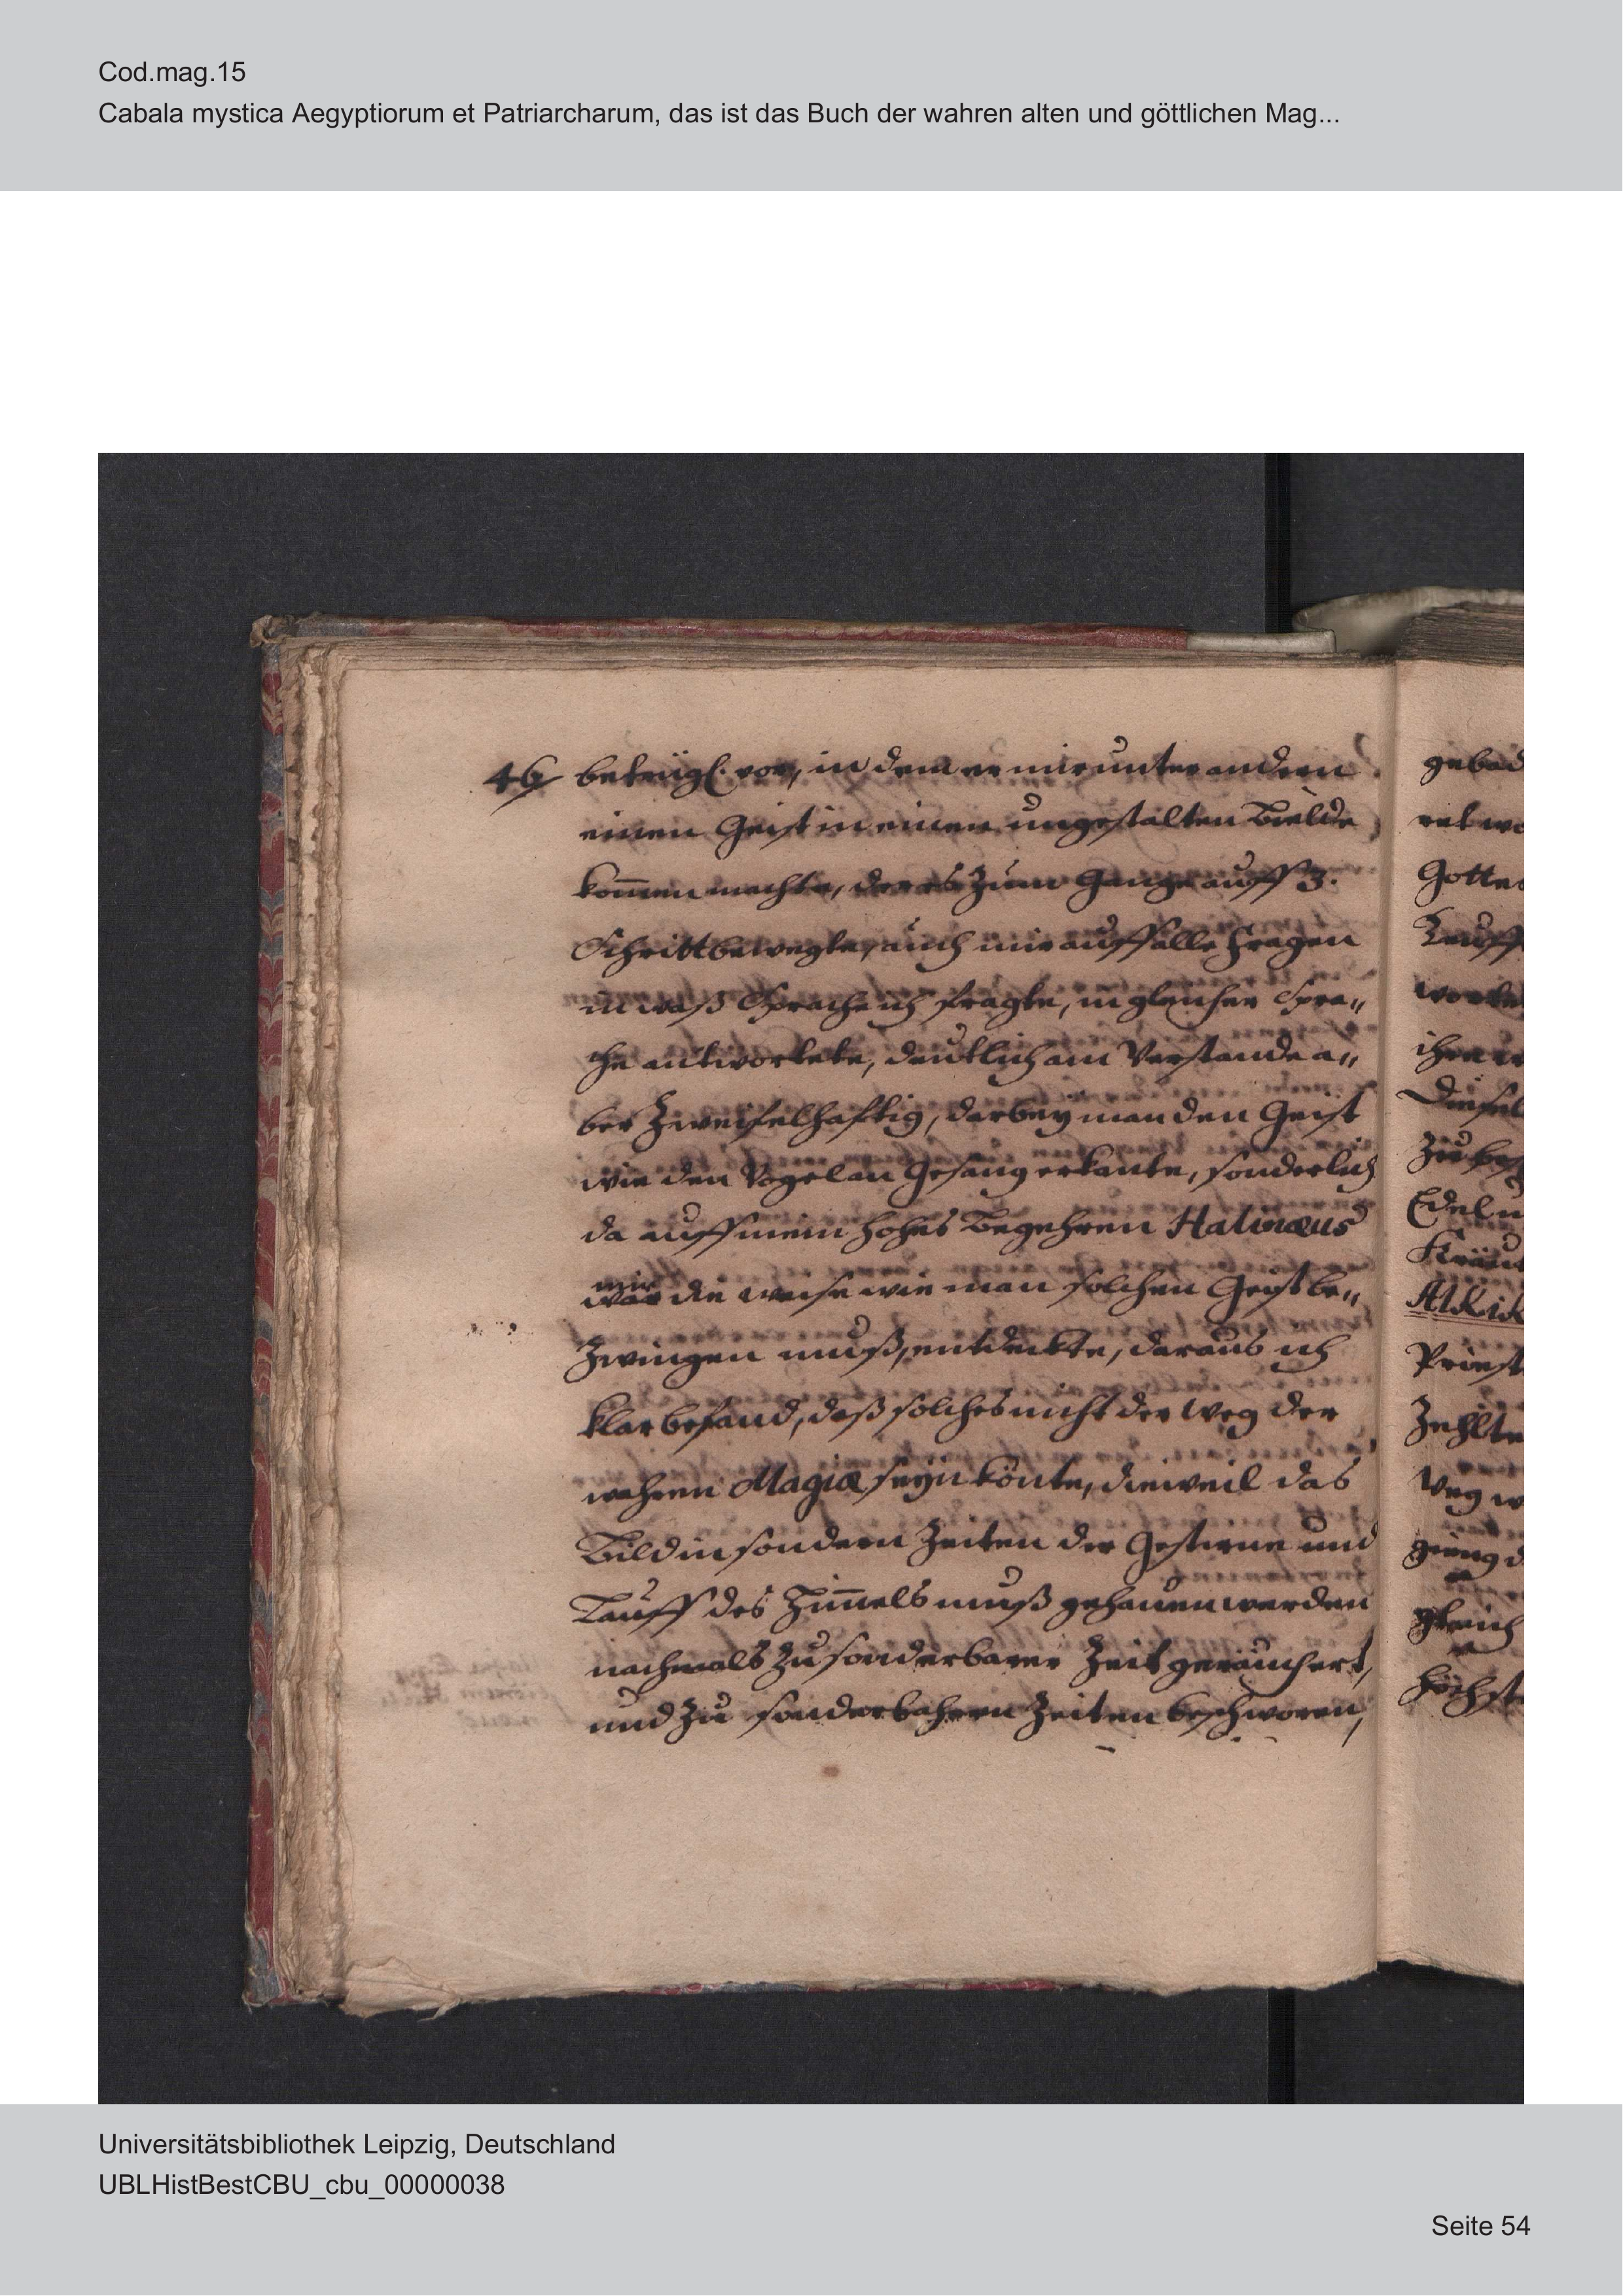 Cod.mag.15
Cabala mystica Aegyptiorum et Patriarcharum, das ist das Buch der wahren alten und göttlichen Mag...
46 betrügl. vor, in dem er mir unter andern
einen Geist in einen ungestalten Bielde
kom̄en machte, der es zum Gange auff 3.
Schritt bewegte, auch mir auff alle fragen
in waß Sprache ich fragte, in gleicher Spra„
che antwortete, deutlich am Verstande a„
ber Zweifelhafftig, darbey man den Geist
wie den Vogel am Gesang erkante, sonderlich
da auff mein hohes Begehren
mir die weise wie man solchen Geist be„
Zwingen muß, entdeckte, daraus ich
klar befand, daß solches nicht der Weg der
wahren Magiæ seyn könte, dieweil das
Bild in sondern Zeiten der Gestirne und
Lauff des Him̄els muß gehauen werden
nachmals zu sonderbarer Zeit geräuchert,
und zu sonderbahren Zeiten beschworen,
Gottes
Lauff
Zu
Edel
Priest
Zehlte
Weg
gieng
gleich
höchst
Universitätsbibliothek Leipzig, Deutschland
UBLHistBestCBU_cbu_00000038
Seite 54